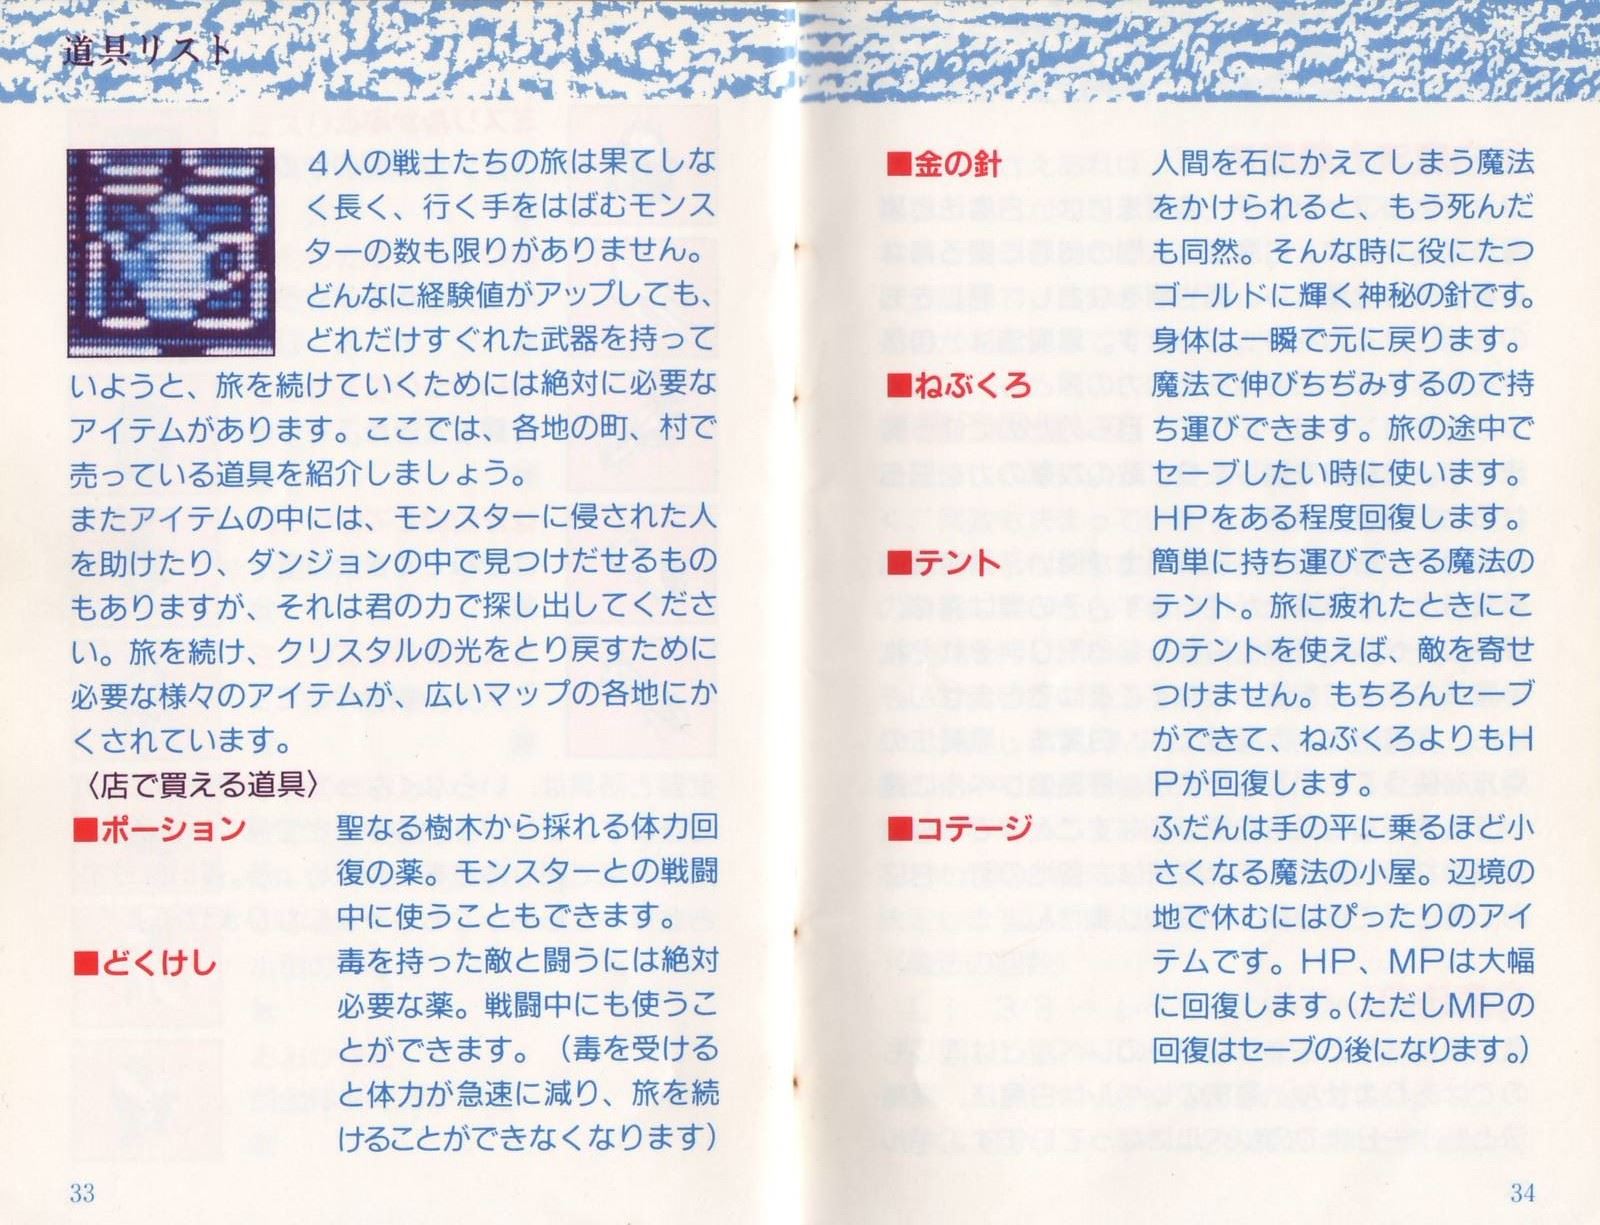 道具リスト
4人の戦士たちの旅は果てしな
く長く、行く手をはばむモンス
ターの数も限りがありません。
どんなに経験値がアップしても、
どれだけすぐれた武器を持って
いようと、旅を続けていくためには絶対に必要な
アイテムがあります。ここでは、各地の町、村で
売っている道具を紹介しましょう。
またアイテムの中には、モンスターに侵された人
を助けたり、ダンジョンの中で見つけだせるもの
もありますが、それは君の力で探し出してくださ
い。旅を続け、クリスタルの光をとり戻すために
必要な様々のアイテムが、広いマップの各地にか
くされています。
〈店で買える道具〉
■ポーション 聖なる樹木から採れる体力回
復の薬。モンスターとの戦闘
中に使うこともできます。
■どくけし 毒を持った敵と闘うには絶対
必要な薬。戦闘中にも使うこ
とができます。（毒を受ける
と体力が急速に減り、旅を続
けることができなくなります）
33
■金の針 人間を石にかえてしまう魔法
をかけられると、もう死んだ
も同然。そんな時に役にたつ
ゴールドに輝く神秘の針です。
身体は一瞬で元に戻ります。
■ねぶくろ 魔法で伸びちぢみするので持
ち運びできます。旅の途中で
セーブしたい時に使います。
HPをある程度回復します。
■テント 簡単に持ち運びできる魔法の
テント。旅に疲れたときにこ
のテントを使えば、敵を寄せ
つけません。もちろんセーブ
ができて、ねぶくろよりもH
Pが回復します。
■コテージ ふだんは手の平に乗るほど小
さくなる魔法の小屋。辺境の
地で休むにはぴったりのアイ
テムです。HP、MPは大幅
に回復します。（ただしMPの
回復はセーブの後になります。）
34